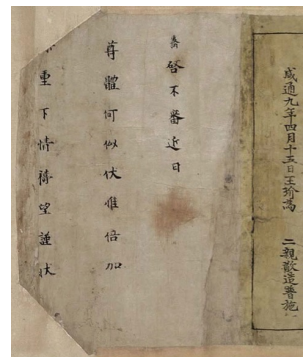 咸通九年四月十五日王玠為 二親敬造普施
啓不審近日
尊體何似伏惟倍加
重下情禱望謹伏